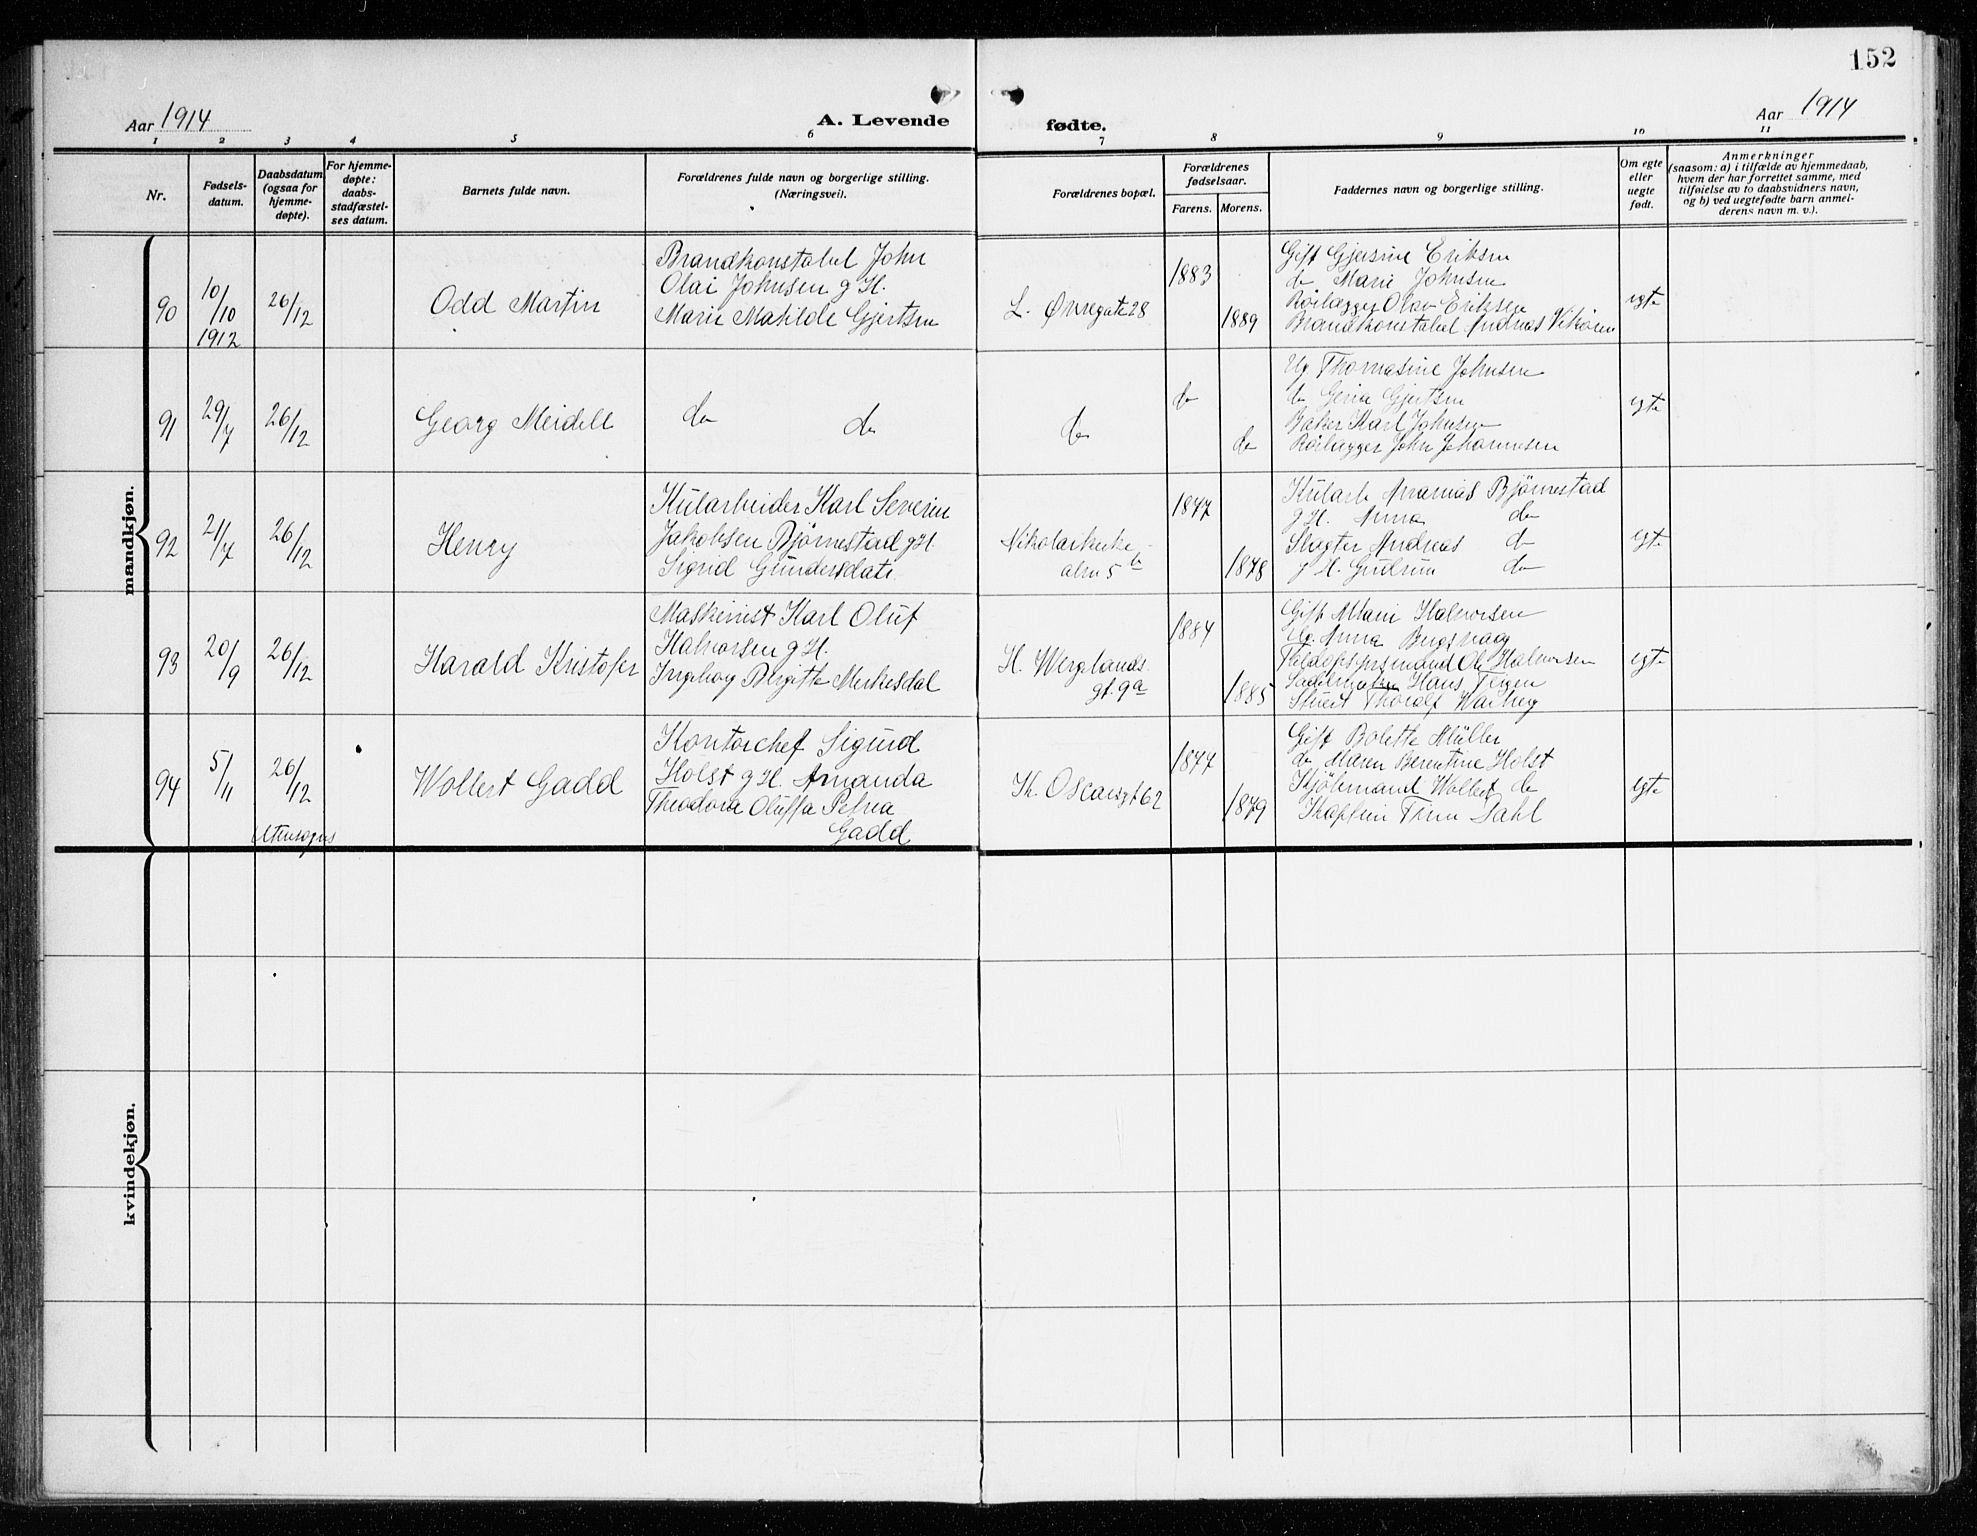 152
Aar 1914
A. Levende
fødte.
Aar 1914
1 2 3 4 5 6 7 8 9 10 11
Nr.
Fødsels-
datum.
Daabsdatum
(ogsaa for
hjemme-
døpte).
For hjemme-
døpte:
daabs-
stadfæstel-
ses datum.
Barnets fulde navn.
Forældrenes fulde navn og borgerlige stilling.
(Næringsvei).
Forældrenes bopæl.
Forældrenes
fødselsaar.
Farens. Morens.
Faddernes navn og borgerlige stilling.
Om egte
eller
uegte
født.
Anmerkninger
(saasom: a) i tilfælde av hjemmedaab,
hvem der har forrettet samme, med
tilføielse av to daabsvidners navn,
og b) ved uegtefødte barn anmel-
derens navn m. v.).
mandkjøn.
90
10/10
1912
26/12
Odd Martin
Brandkonstabel John
Olai Johnsen g H.
Marie Matilde Gjertsen
L. Øvregate 28
1883
1889
Gift Gjersine Eriksen
do Marie Johnsen
Rørlægger Olav Eriksen
Brandkonstabel Andreas Vikøren
egte
91
29/7
26/12
Georg Meidell
do do
do
do
do
Ug Thomasine Johnsen
do Gjertsen
Baker Karl Johnsen
Rørlægger John Johannesen
egte
92
21/7
26/12
Henry
Kularbeider Karl Severin
Jakobsen Bjørnestad g H.
Sigrid Gundersdatr.
Nikolaikirke-
alm 5 b
1877
1878
Kularb Ananias Bjørnestad
g H. Anna do
Slagter Andreas do
g H. Gudrun do
egte
93
20/9
26/12
Harald Kristofer
Maskinist Karl Oluf
Halvorsen g H.
Ingeborg Birgitte Merkesdal
H. Wergelands-
gt. 9a
1884
1885
Gift Marie Halvorsen
Ug. Anna
Ole Halvorsen
Sadelmaker Hans Teigen
Stuert Thoralf
egte
94
5/11
26/12
Wollert Gadd
Kontorchef Sigurd
Holst g H. Amanda
Theodora Oluffa Petrea
Gadd
K. Oscarsgt 62
1877
1879
Gift Bolette Müller
do Maren Berentine Holst
Kjøbmand Wollert do
Kaptein Dahl
egte
kvindekjøn.